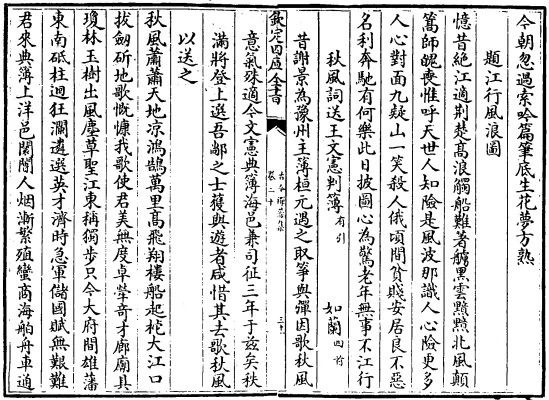 今朝忽過索吟篇筆底生花夢方熟
題江行風浪圖
憶昔絶江過荆楚高浪觸船難著艣黒雲黯黯北風顛
篙師魄喪惟呼天世人知險是風波那識人心險更多
人心對面九疑山一笑殺人俄頃間貧賤安居良不惡
名利奔馳有何樂此日披圖心為驚老年無事不江行
秋風詞送王文憲判簿有引 如蘭四首
昔謝景為豫州主簿桓元遇之取箏與彈因歌秋風
欽定四庫全書
卷二十
三十
意氣殊適今文憲典簿海邑兼司征三年于兹矣秩
滿將登上選吾鄙之士獲與遊者咸惜其去歌秋風
以送之
秋風蕭蕭天地凉鴻鵠萬里高飛翔樓船起柁大江口
拔劒斫地歌慨慷我歌使君美無度卓犖奇才廊廟具
瓊林玉樹出風塵草聖江東稱獨步只今大府間雄藩
東南砥柱迴狂瀾遴選英才濟時急軍儲國賦無艱難
君來典簿上洋邑闤闠人烟漸繁殖蠻商海舶舟車通